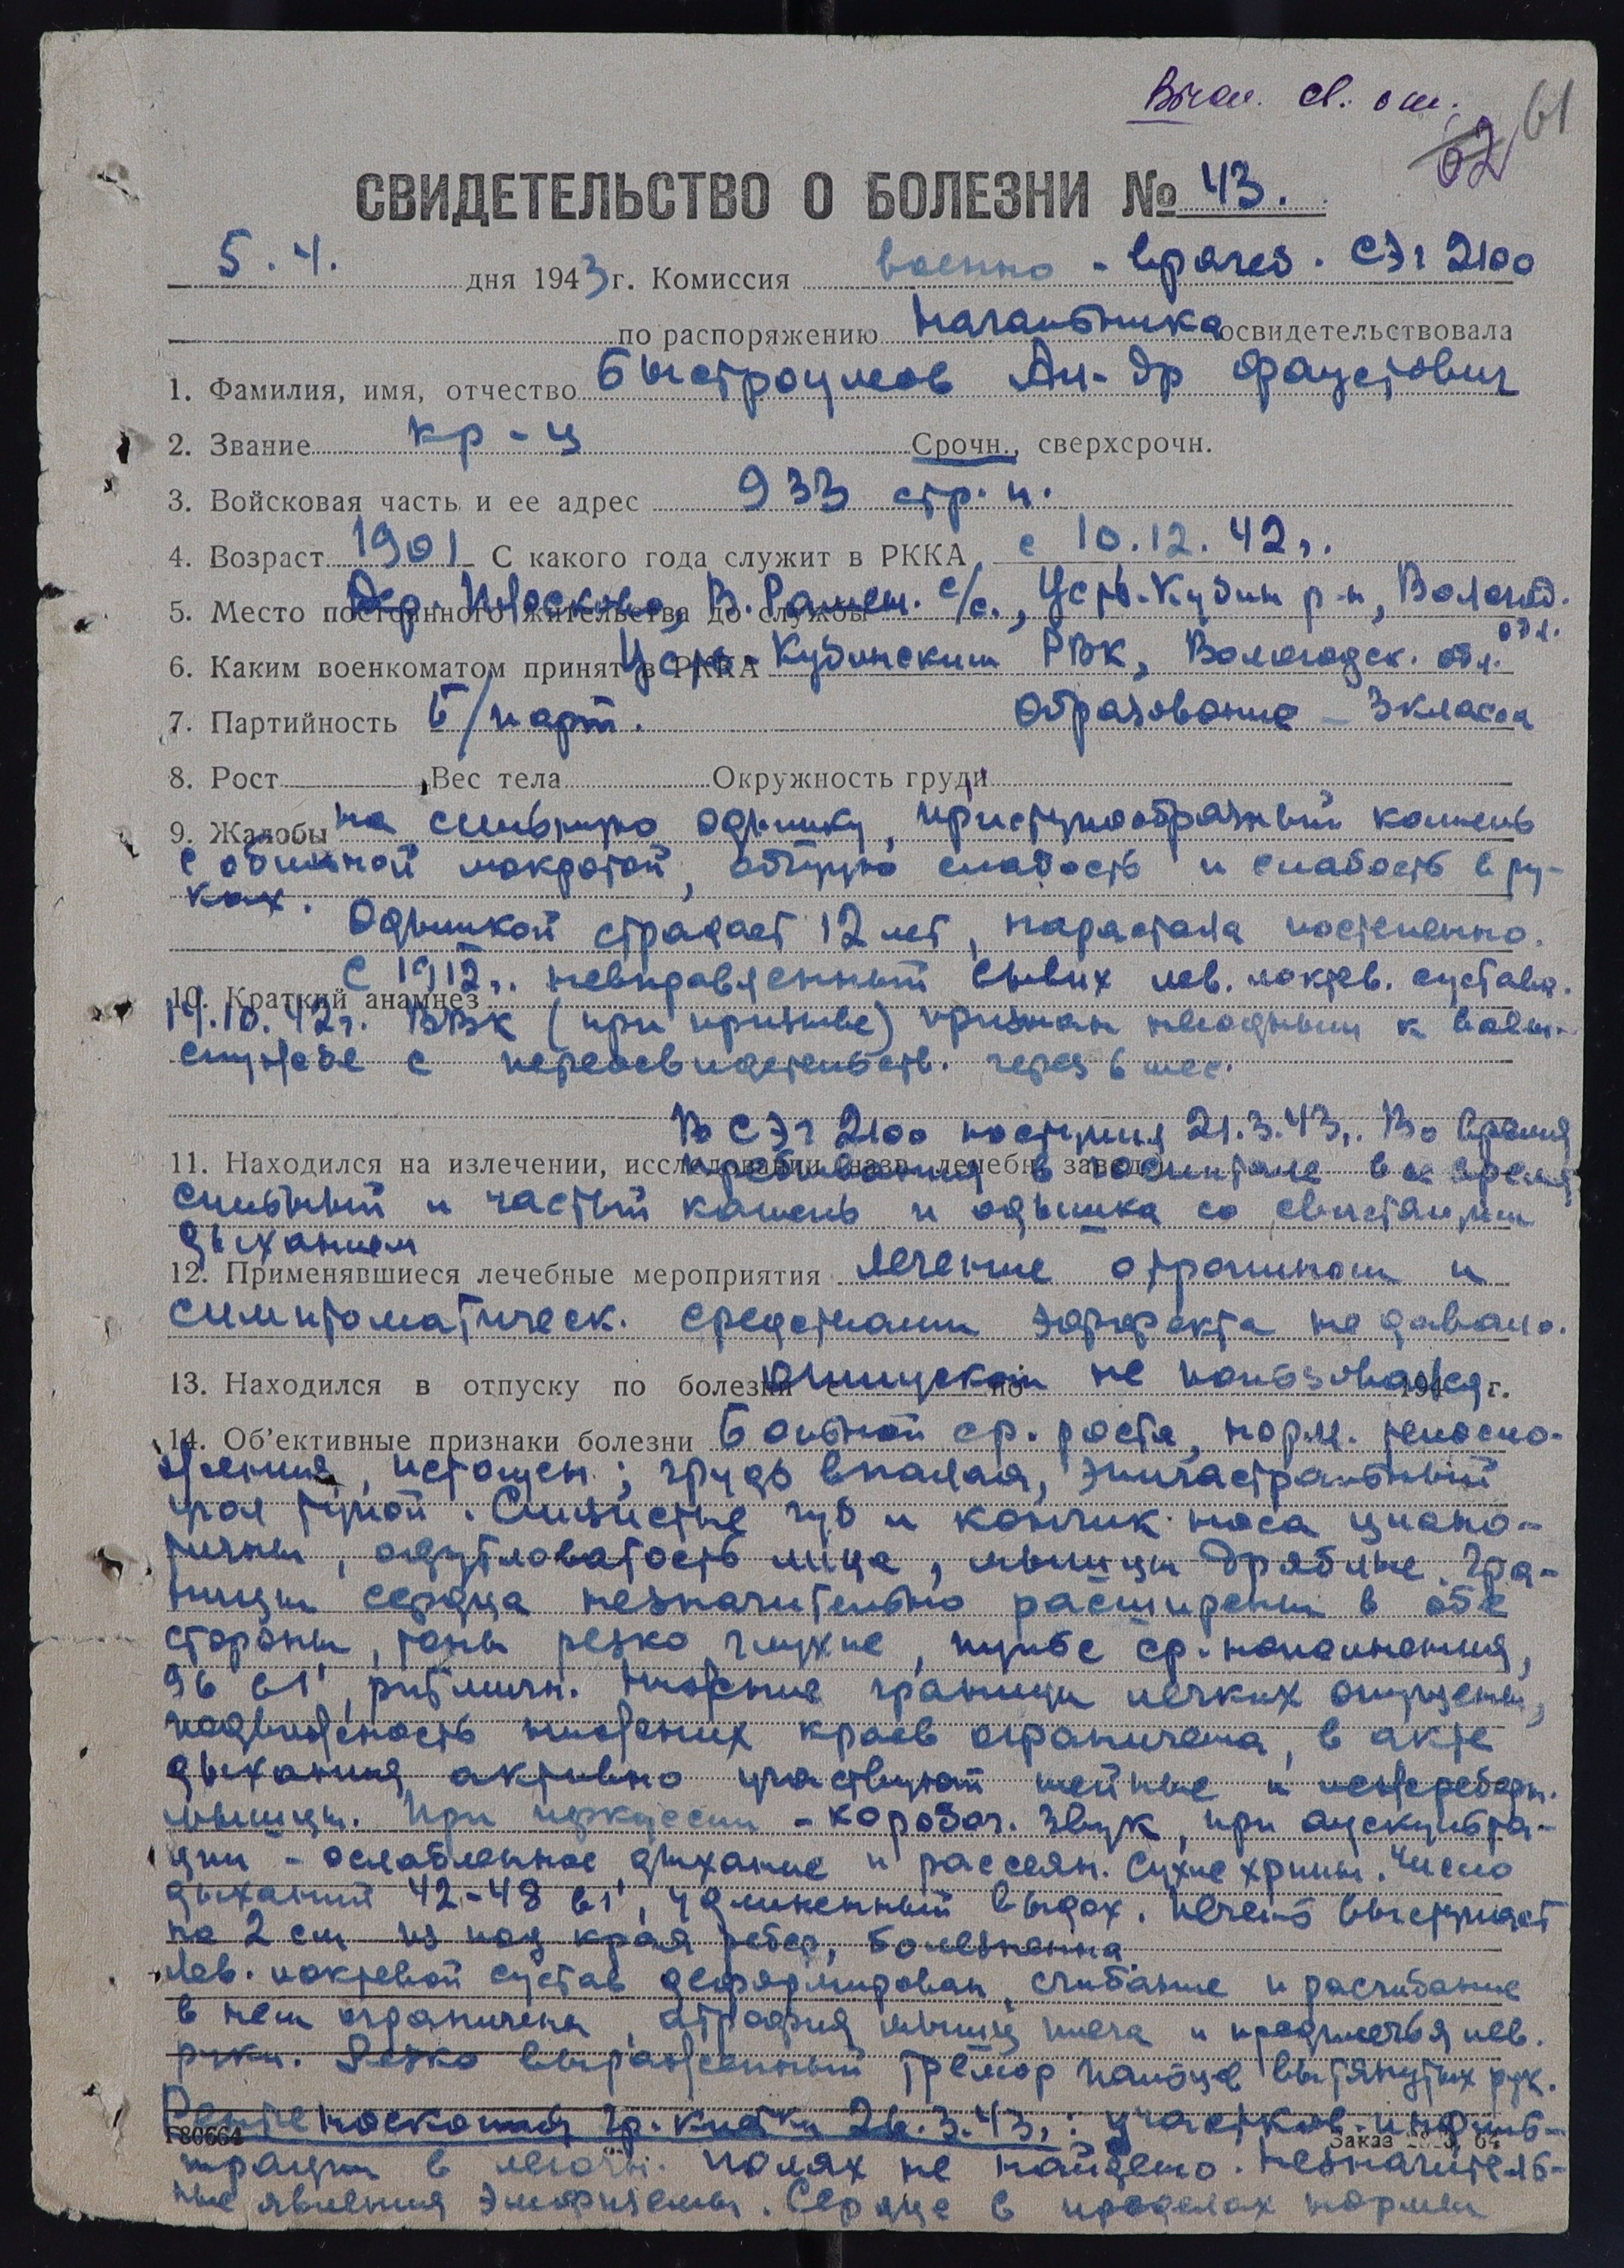 св.
61
62
СВИДЕТЕЛЬСТВО О БОЛЕЗНИ № 43.
5.4. дня 1943 г. Комиссия военно-врачеб. СЭГ 2100
по распоряжению начальника освидетельствовала
1. Фамилия, имя, отчество Быстроумов Ал-др Фаустович
2. Звание кр-ц Срочн., сверхсрочн.
3. Войсковая часть и ее адрес 933 стр. п.
4. Возраст 1901 С какого года служит в РККА с 10.12.42 г.
5. Место постоянного жительства до службы Дер. В. с/с., Усть-Кубин р-н, Вологод. обл.
6. Каким военкоматом принят в РККА Усть-Кубинским РВК, Вологодск. обл.
7. Партийность б/парт. Образование - 3 класса
8. Рост Вес тела Окружность груди
9. Жалобы на сильную одышку, приступообразный кашель
с обильной мокротой, общую слабость и слабость в ру-
ках. Одышкой страдает 12 лет, нарастала постепенно.
10. Краткий анамнез С 1912 г. невправленный вывих лев. локтев. сустава.
14.10.42 г. ВВК (при призыве) признан негодным к воен.
службе с переосвидетельств. через 6 мес.
11. Находился на излечении, исследовании (назв. лечебн. завед.) В СЭГ 2100 поступил 21.3.43 г. Во время
пребывания в госпитале все время
сильный и частый кашель и одышка со свистящим
дыханием
12. Применявшиеся лечебные мероприятия лечение атропином и
симптоматическ. средствами эффекта не давало.
13. Находился в отпуску по болезни с по 194 г. отпуском не пользовался.
14. Об'ективные признаки болезни Больной ср. роста, норм. телосло-
жения, истощен; грудь впалая, эпигастральный
угол тупой. Слизистые губ и кончик носа циано-
тичны, одутловатость лица, мышцы дряблые. Гра-
ницы сердца незначительно расширены в обе
стороны, тоны резко глухие, пульс ср. наполнения,
96 в 1', ритмичн. Нижние границы легких опущены,
подвижность нижних краев ограничена, в акте
дыхания активно участвуют шейные и межреберн.
мышцы. При перкуссии - коробоч. звук, при аускульта-
ции - ослабленное дыхание и рассеян. сухие хрипы. Число
дыханий 42-48 в 1', удлиненный выдох. Печень выступает
на 2 см из под края ребер, болезненна.
Лев. локтевой сустав деформирован, сгибание и разгибание
в нем ограничены, атрофия мышц плеча и предплечья лев.
руки. Резко выраженный тремор пальцев вытянутых рук.
Рентгеноскопия гр. клетки 26.3.43 г.: участков инфиль-
Г80664 Заказ 64
трации в легочн. полях не найдено. Незначитель-
ные явления эмфиземы. Сердце в пределах нормы